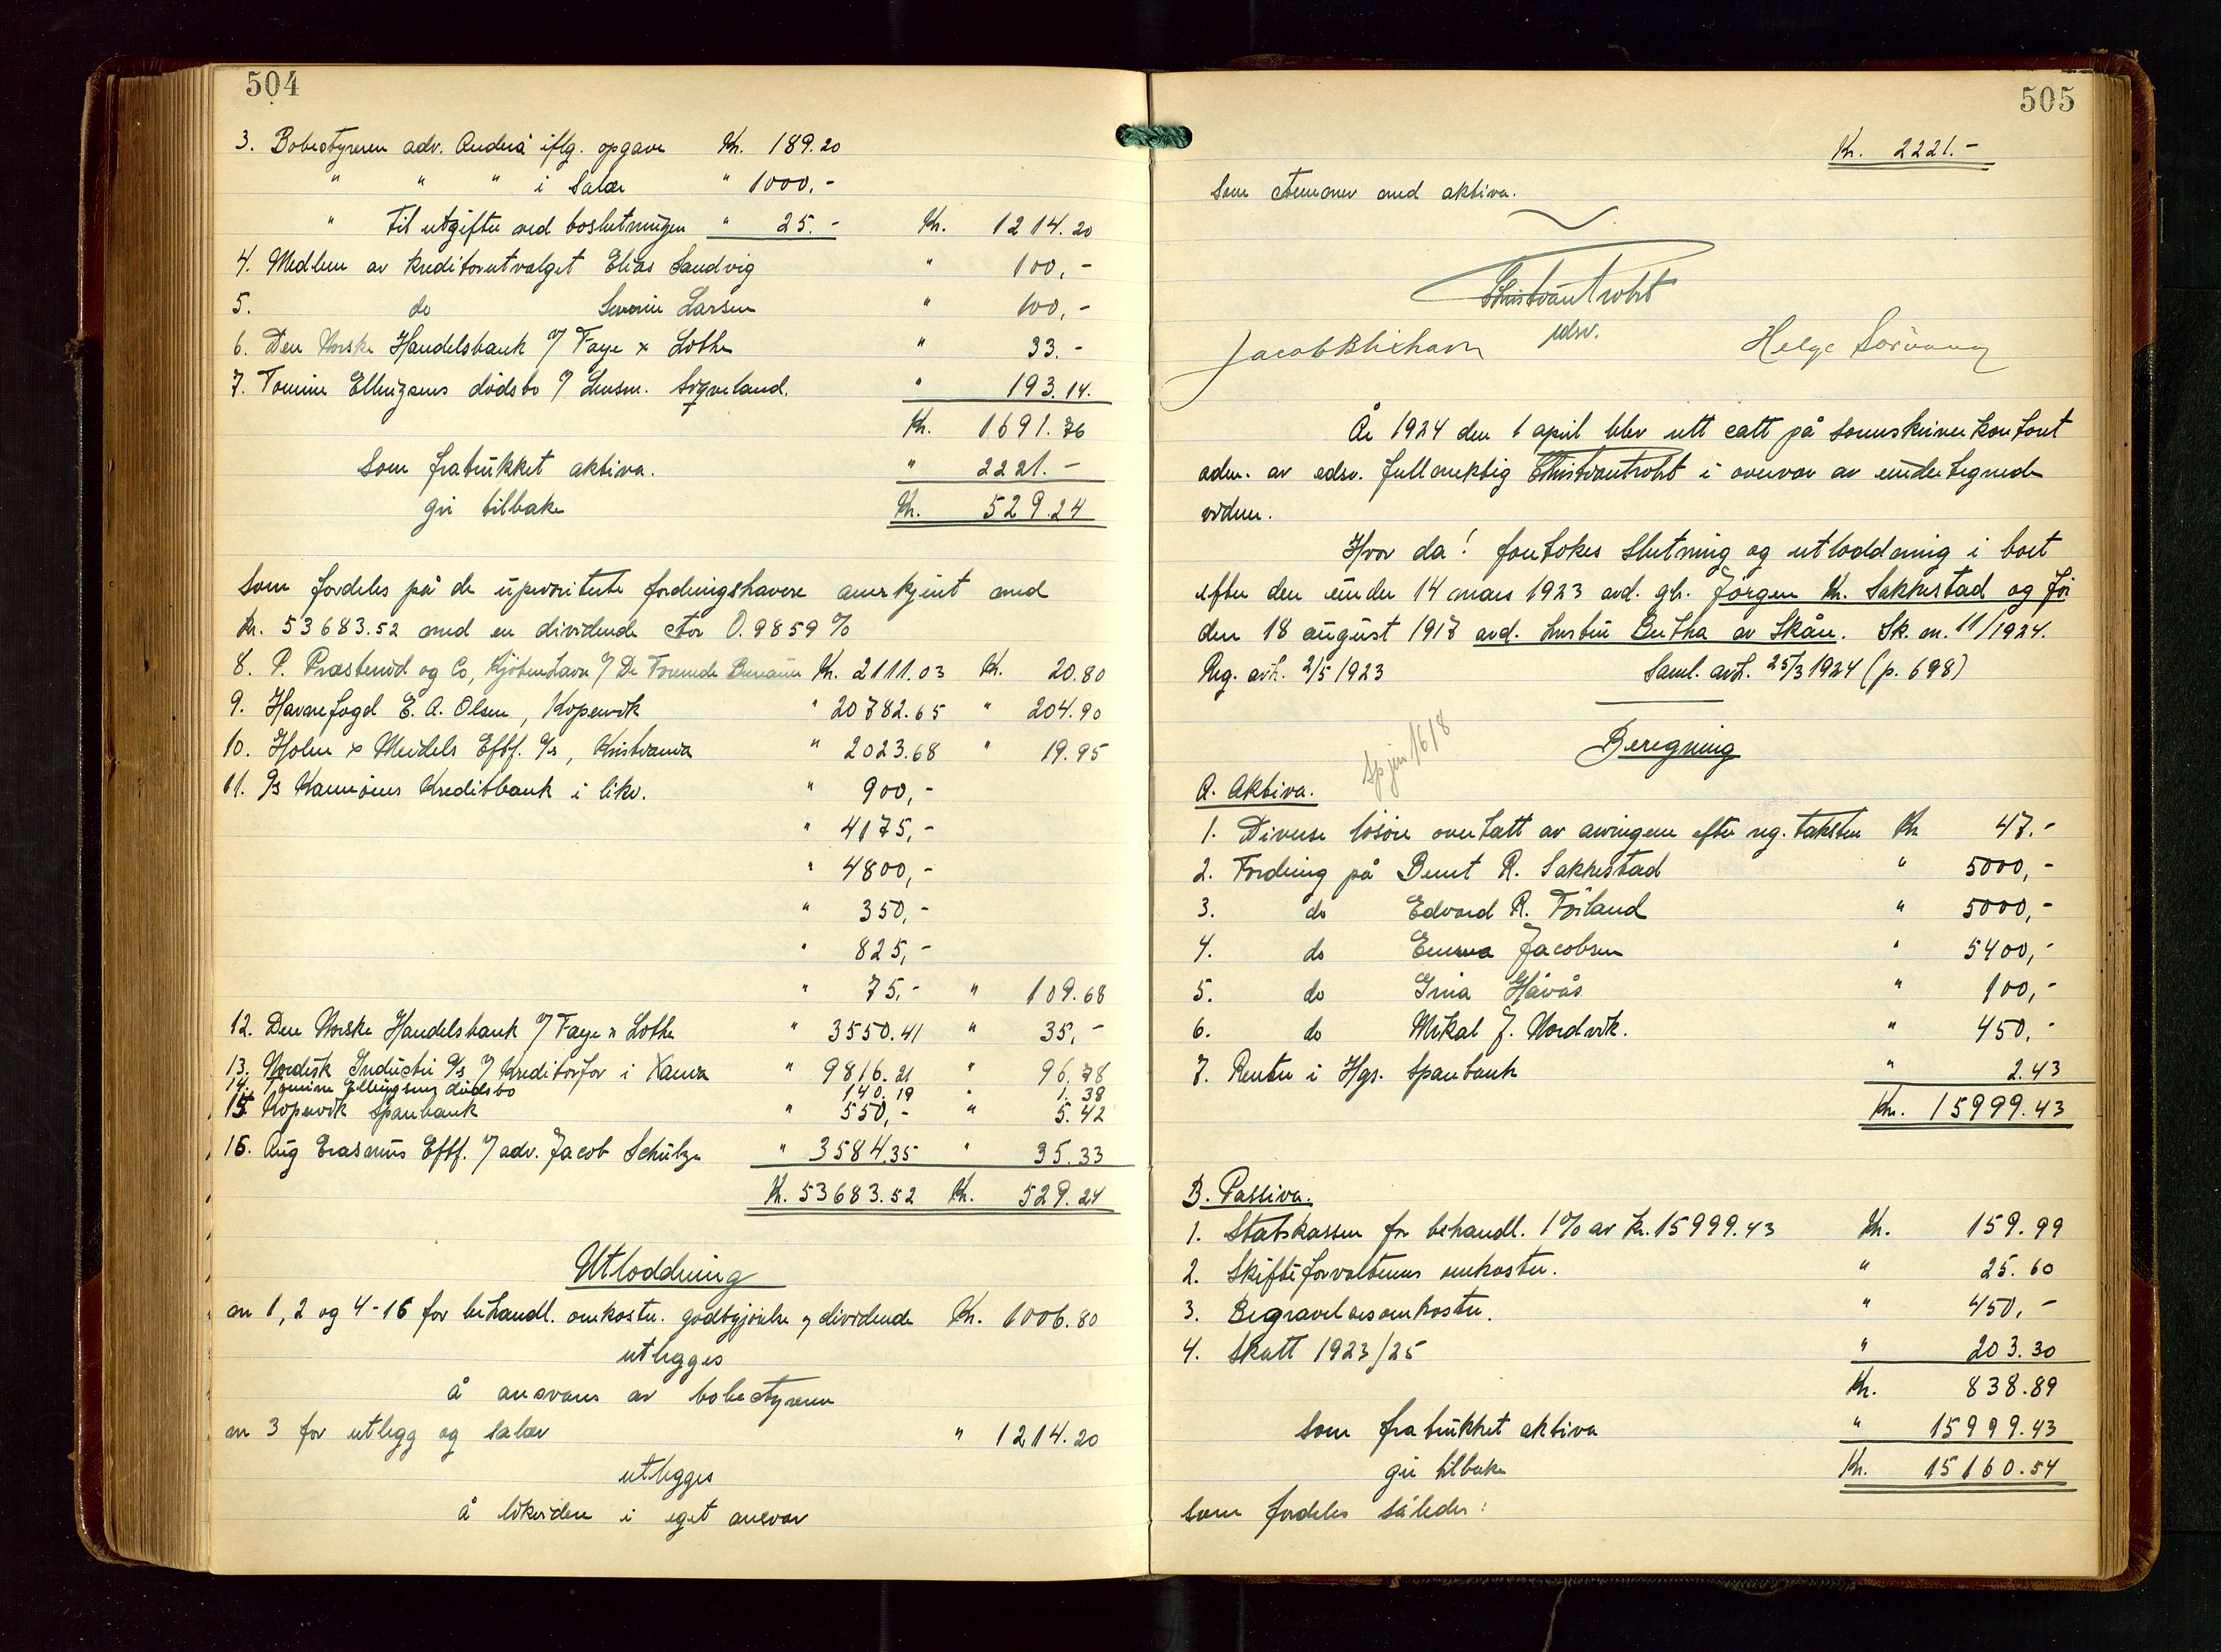 504
3. Bobestyreren adv. Andreá iflg. opgave Kr. 189.20
" " " i Salær " 1000,-
" Til utgifter ved boslutningen " 25.- Kr. 1214.20
4. Medlem av kreditorutvalget Elias Sandvig " 100,-
5. do Severin Larsen " 100,-
6. Den Norske Handelsbank v/ Faye & Lothe " 33.-
7. Tomine Ellingsens dödsbo v/ Lensm. Sigveland. " 193.14.
Kr. 1691.76
Som fratrukket aktiva. " 2221.-
gir tilbake Kr. 529.24
Som fordeles på de uprioriterte fordringshavere anerkjent med
Kr. 53683.52 med en dividende stor 0.9859 %
8. P. Præstemod og Co, Kjöbenhavn v/ De Forenede Kr. 2111.03 Kr. 20.80
9. Havnefogd E. A. Olsen, Kopervik " 20782.65 " 204.90
10. Holm & Meidels Eftf. A/s, Kristiania " 2023.68 " 19.95
11. A/s Karmöens Kreditbank i likv. " 900,-
" 4175,-
" 4800,-
" 350,-
" 825,-
" 75,- " 109.68
12. Den Norske Handelsbank v/ Faye & Lothe " 3550.41 " 35,-
13. Nordisk Industri A/s v/ Kreditorfor i Xania " 9816.21 " 96.78
14. Tomine Ellingsens dödsbo 140.19 " 1.38
15. Kopervik Sparebank " 550,- " 5.42
16. Aug Erasmus Eftf. v/ adv. Jacob Schulze " 3584.35 " 35.33
Kr. 53683.52 Kr. 529.24
Utloddning
nr 1, 2 og 4-16 for behandl. omkostn. godtgjörelse og dividende Kr. 1006.80
utlegges
å ansvars av bobestyreren
nr 3 for utlegg og salær " 1214.20
utlegges
å likviden i eget ansvar
505
Kr. 2221.-
Som stemmer med aktiva.
Christian Trobst
edsv.
Jacob Blixhavn Helge Sörvaag
År 1924 den 1 april blev rett satt på sorenskriverkontoret
adm. av edsv. fullmektig Christiantrobst i overvær av undertegnede
vidner.
Hvor da! foretokes Slutning og utloddning i boet
efter den under 14 mars 1923 avd. gbr. Jörgen Kr. Sakkestad og för
den 18 august 1917 avd. hustru Bertha av Skåre. Sk. nr. 11/1924.
Reg. avh. 2/5 1923 Saml. avh. 25/3 1924 (p. 698)
Beregning
A. Aktiva.
1. Diverse lösöre overtatt av arvingene efter reg. taksten Kr 47.-
2. Fordring på Bernt R. Sakkestad " 5000,-
3. do Edvard R. Föiland " 5000,-
4. do Emma Jacobsen " 5400,-
5. do Gina Håvås " 100,-
6. do Mikal J. Nordvik. " 450.-
7. Renter i Hgs. Sparebank " 2.43
Kr. 15999.43
B. Passiva.
1. Statskassen for behandl. 1% av kr. 15999.43 Kr. 159.99
2. Skifteforvalterens omkostn. " 25.60
3. Begravelsesomkostn. " 450.-
4. Skatt 1923/25 " 203.30
Kr. 838.89
Som fratrukket aktiva " 15999.43
gir tilbake Kr. 15160.54
som fordeles således: